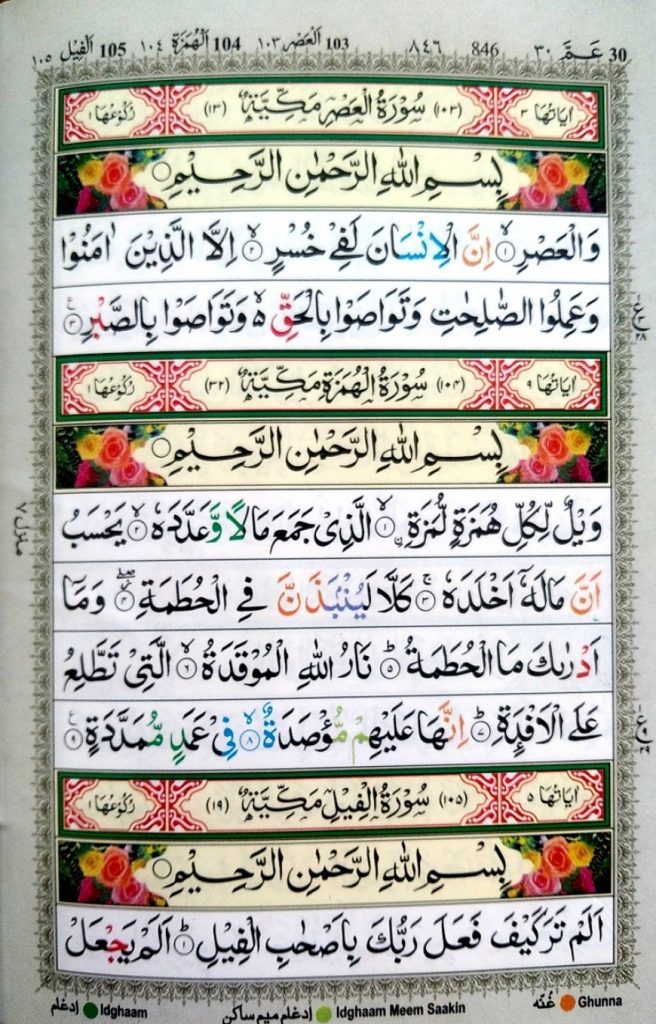 30 عَمَّ ٣٠ 846 ٨٤٦ 103 اَلْعَصْر ١٠٣ 104 اَلْهُمَزَة ١٠٤ 105 اَلْفِيْل ١٠٥
اٰيَاتُهَا ٣ (١٠٣) سُوْرَةُ الْعَصْرِ مَكِّيَّةٌ (١٣) رُكُوْعُهَا ١
بِسْمِ اللّٰهِ الرَّحْمٰنِ الرَّحِيْمِ
وَالْعَصْرِۙ۝١ اِنَّ الْاِنْسَانَ لَفِيْ خُسْرٍۙ۝٢ اِلَّا الَّذِيْنَ اٰمَنُوْا
وَعَمِلُوا الصّٰلِحٰتِ وَتَوَاصَوْا بِالْحَقِّ ۙ۬ وَتَوَاصَوْا بِالصَّبْرِ۝٣ ع
اٰيَاتُهَا ٩ (١٠٤) سُوْرَةُ الْهُمَزَةِ مَكِّيَّةٌ (٣٢) رُكُوْعُهَا ١
بِسْمِ اللّٰهِ الرَّحْمٰنِ الرَّحِيْمِ
وَيْلٌ لِّكُلِّ هُمَزَةٍ لُّمَزَةِۙ۝١ ۨالَّذِيْ جَمَعَ مَالًا وَّعَدَّدَهٗۙ۝٢ يَحْسَبُ
اَنَّ مَالَهٗۤ اَخْلَدَهٗۚ۝٣ كَلَّا لَيُنْۢبَذَنَّ فِي الْحُطَمَةِۖ۝٤ وَمَاۤ
اَدْرٰىكَ مَا الْحُطَمَةُؕ۝٥ نَارُ اللّٰهِ الْمُوْقَدَةُۙ۝٦ الَّتِيْ تَطَّلِعُ
عَلَى الْاَفْـِٕدَةِؕ۝٧ اِنَّهَا عَلَيْهِمْ مُّؤْصَدَةٌۙ۝٨ فِيْ عَمَدٍ مُّمَدَّدَةٍ۝٩ ع
اٰيَاتُهَا ٥ (١٠٥) سُوْرَةُ الْفِيْلِ مَكِّيَّةٌ (١٩) رُكُوْعُهَا ١
بِسْمِ اللّٰهِ الرَّحْمٰنِ الرَّحِيْمِ
اَلَمْ تَرَ كَيْفَ فَعَلَ رَبُّكَ بِاَصْحٰبِ الْفِيْلِؕ۝١ اَلَمْ يَجْعَلْ
Ghunna غُنّه Idghaam Meem Saakin إدغام ميم ساكن Idghaam إدغام